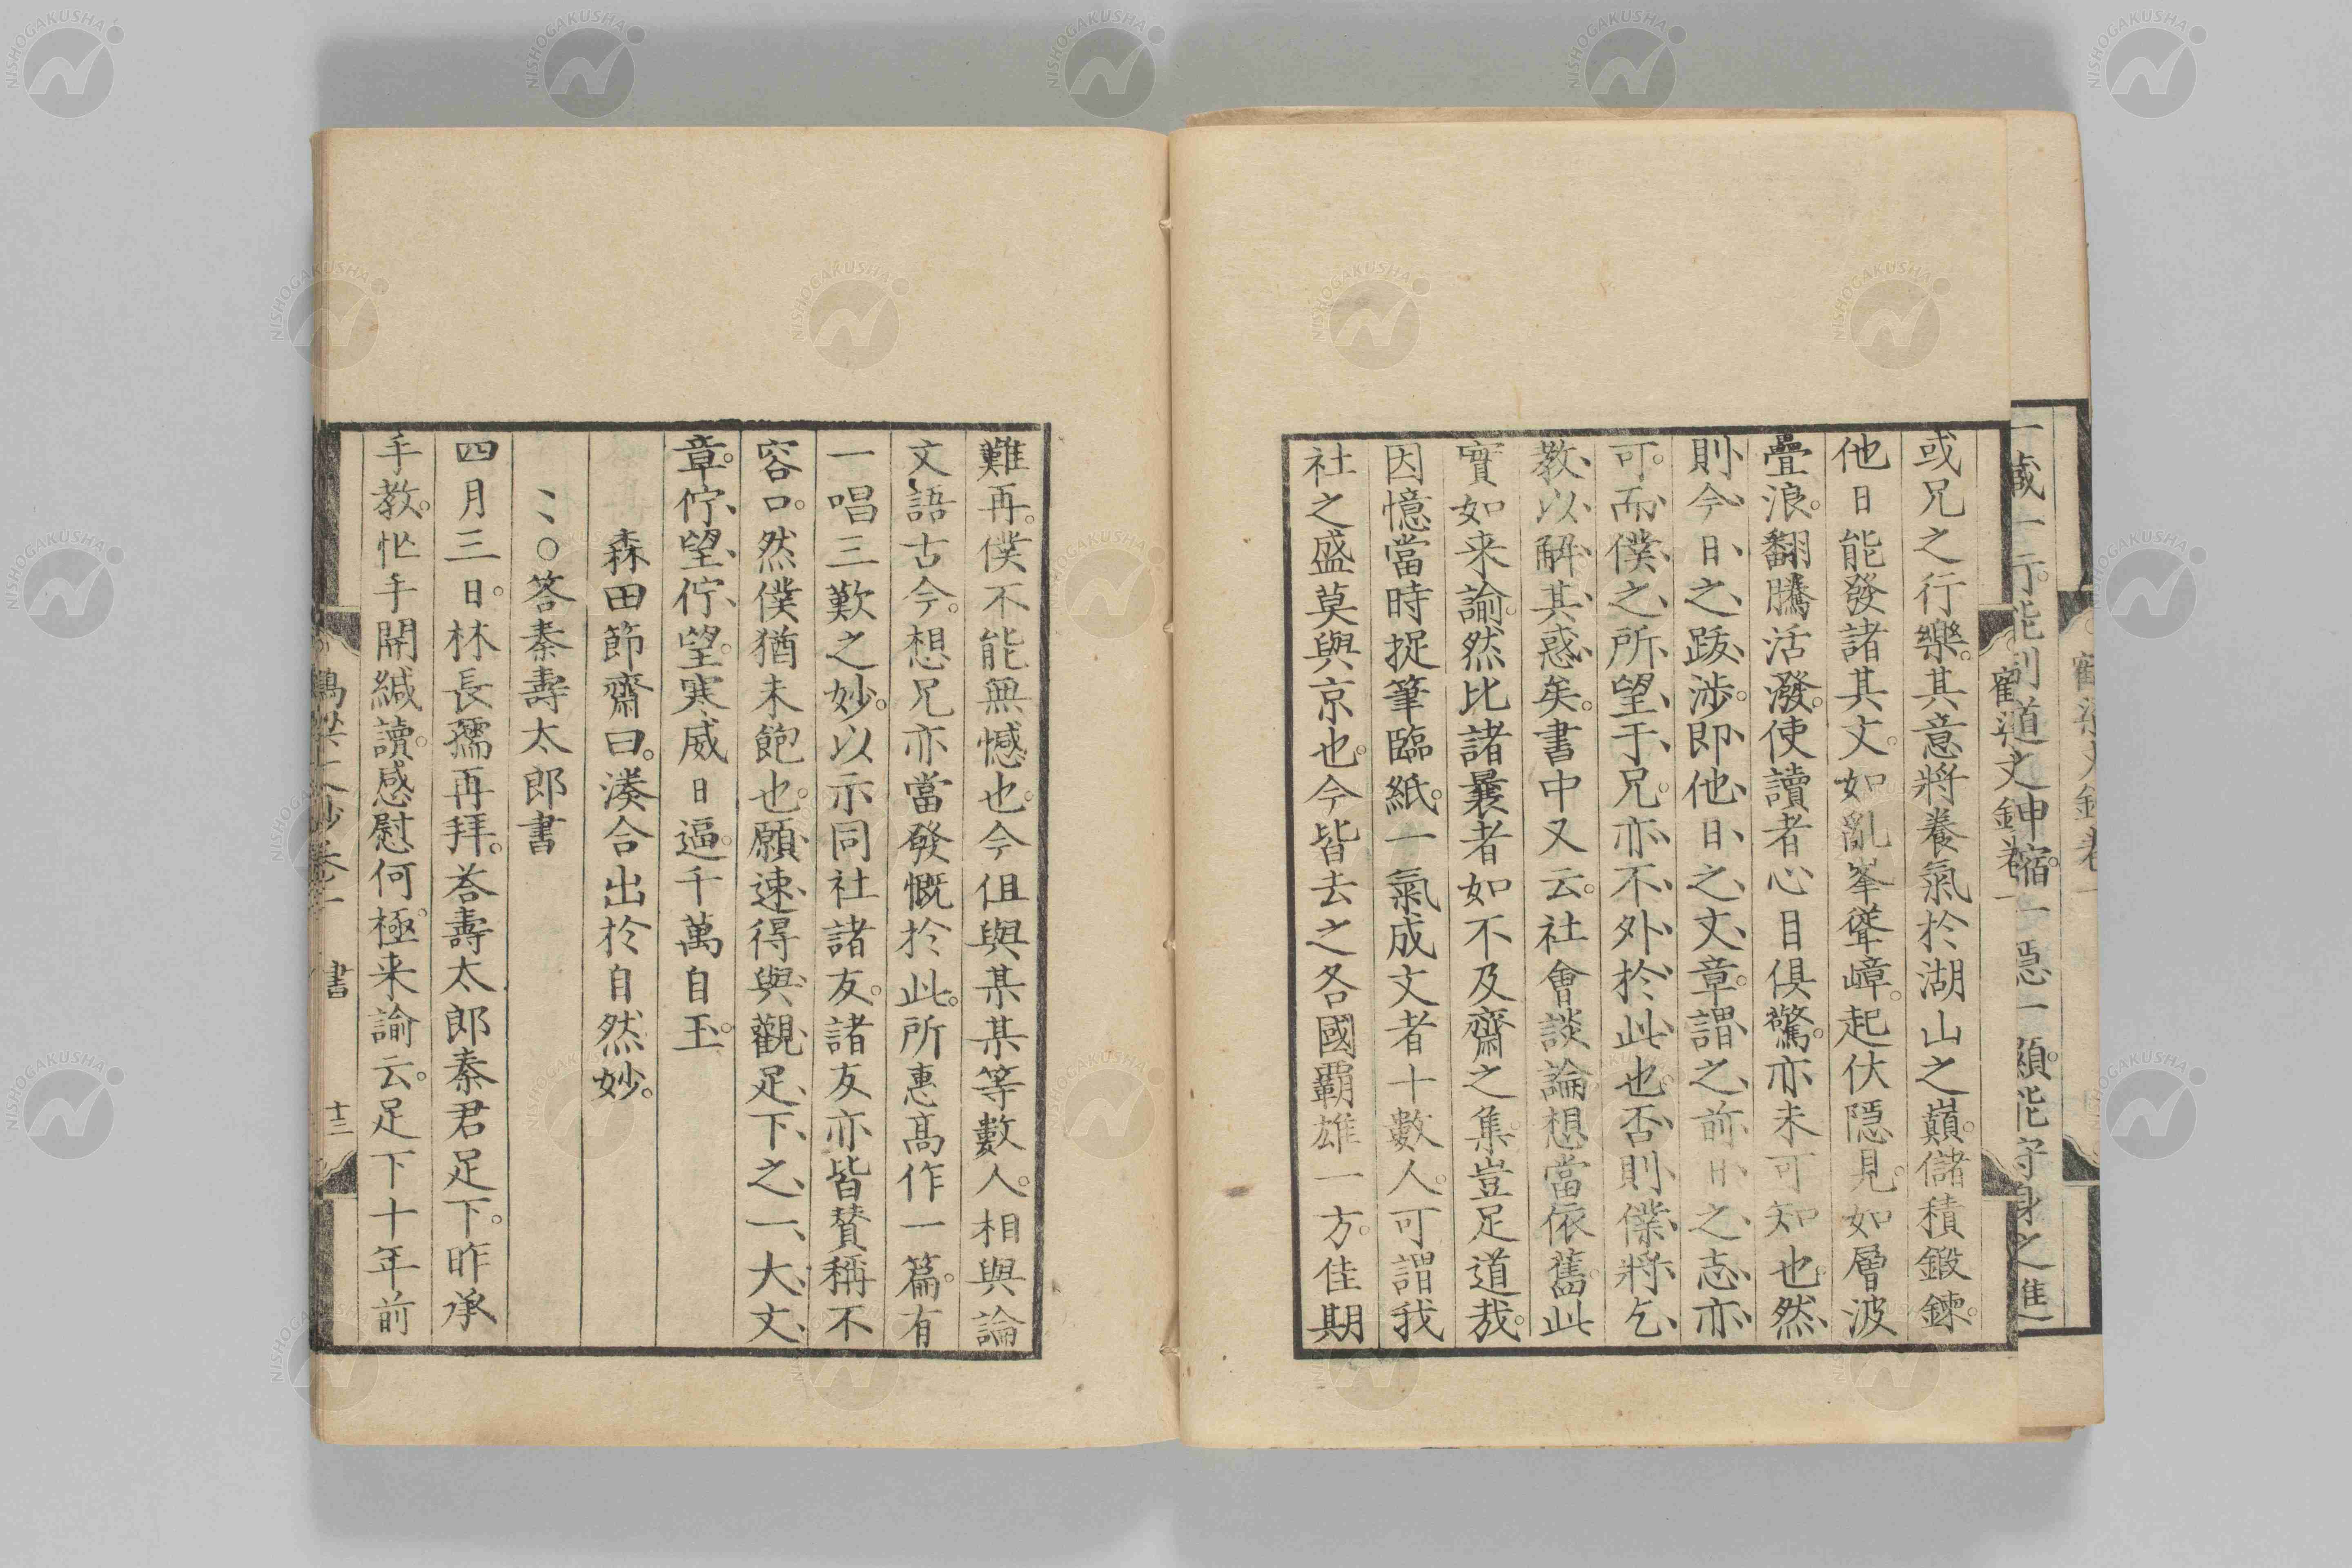 或兄之行樂。其意將養氣於湖山之巔。儲積鍛鍊。
他日能發諸其文。如亂峯聳嶂。起伏隱見。如層波
疊浪。翻騰活潑。使讀者心目俱驚。亦未可知也。然、
則、今、日、之、跋、涉。即、他、日、之、文、章。謂、之、前、日、之、志、亦、
可。而、僕、之、所、望、于、兄。亦、不、外、於、此、也。否、則、僕、將、乞、
教、以、解、其、惑、矣。書中又云。社會談論。想當依舊。此
實如来諭。然比諸曩者如不及齋之集。豈足道哉。
因憶當時捉筆臨紙。一氣成文者十數人。可謂我
社之盛莫與京也。今皆去之各國。覇雄一方。佳期
難再。僕不能無憾也。今但與某某等數人。相與論
文語古今。想兄亦當發慨於此。所惠高作一篇。有
一唱三歎之妙。以示同社諸友。諸友亦皆賛稱不
容口。然僕猶未飽也。願、速、得、與、觀、足、下、之、一、大、文、
章。佇、望、佇、望。寒威日逼。千萬自玉。
森田節齋曰。湊合出於自然妙。
、、〇答秦壽太郎書
四月三日。林長孺再拜。荅壽太郎秦君足下。昨承
手教。忙手開緘讀。感慰何極。来諭云。足下十年前
書 十三
NISHOGAKUSHA